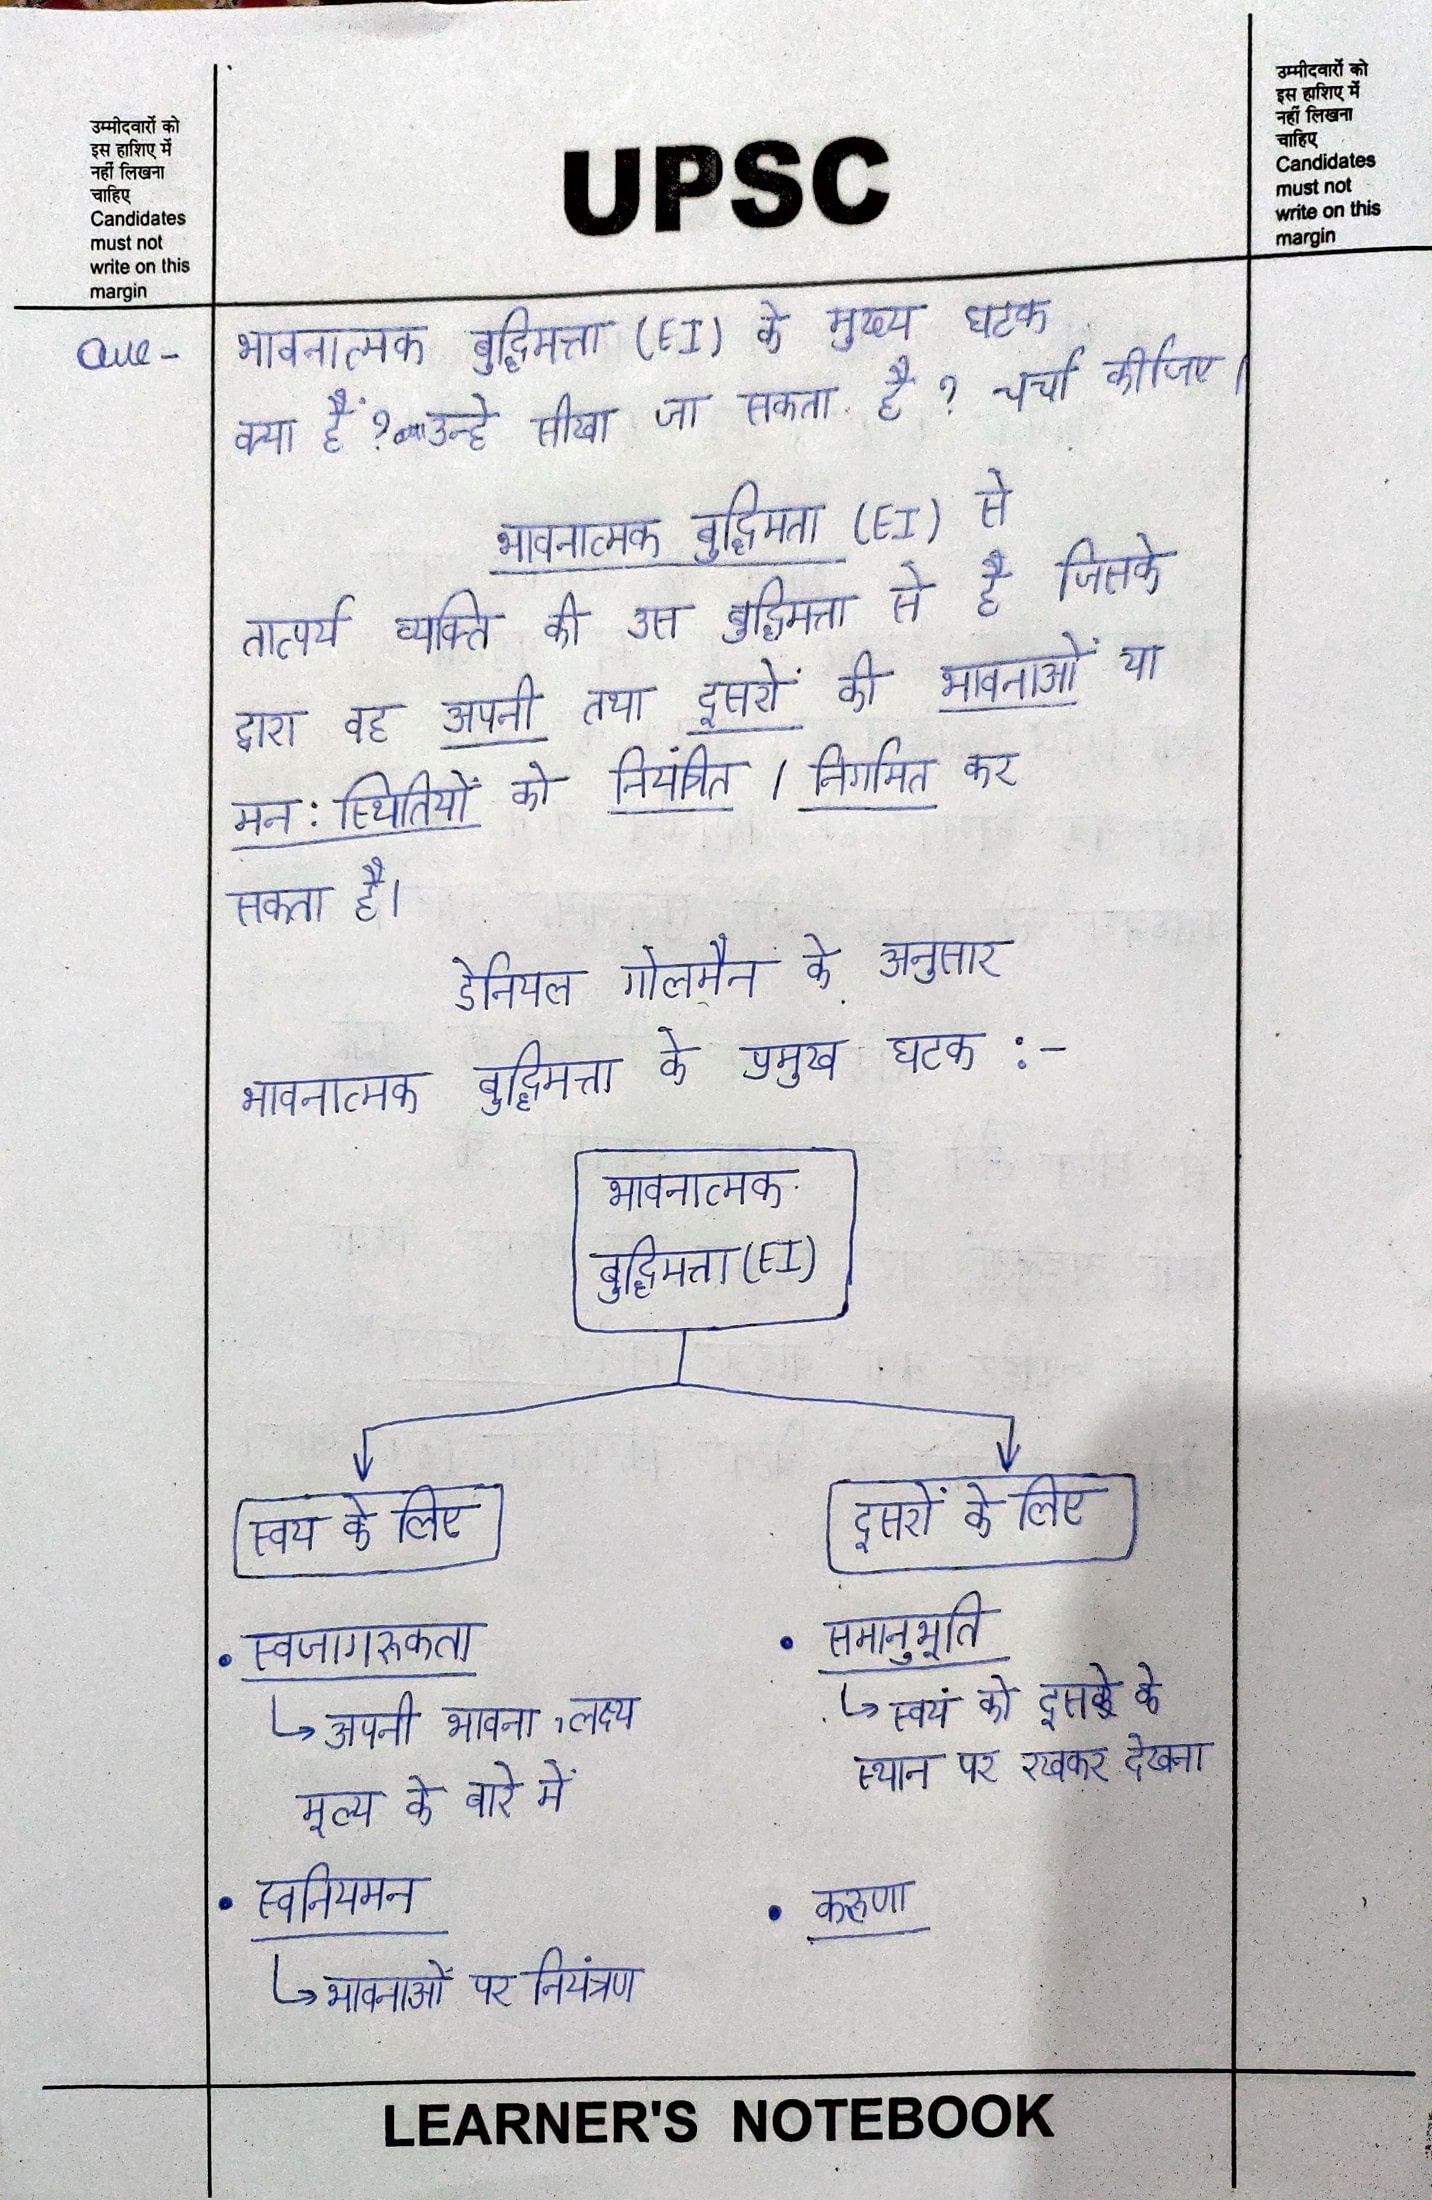 उम्मीदवारों को
इस हाशिए में
नहीं लिखना
चाहिए
Candidates
must not
write on this
margin
UPSC
उम्मीदवारों को
इस हाशिए में
नहीं लिखना
चाहिए
Candidates
must not
write on this
margin
Que- भावनात्मक बुद्धिमत्ता (EI) के मुख्य घटक
क्या हैं? क्या उन्हे सीखा जा सकता है? चर्चा कीजिए।
भावनात्मक बुद्धिमता (EI) से
तात्पर्य व्यक्ति की उस बुद्धिमत्ता से है जिसके
द्वारा वह अपनी तथा दूसरों की भावनाओं या
मन: स्थितियों को नियंत्रित / निगमित कर
सकता है।
डेनियल गोलमैन के अनुसार
भावनात्मक बुद्धिमत्ता के प्रमुख घटक :-
भावनात्मक
बुद्धिमत्ता (EI)
स्वय के लिए
दूसरों के लिए
• स्वजागरूकता
↳ अपनी भावना, लक्ष्य
मूल्य के बारे में
• स्वनियमन
↳ भावनाओं पर नियंत्रण
• समानुभूति
↳ स्वयं को दूसरे के
स्थान पर रखकर देखना
• करुणा
LEARNER'S NOTEBOOK